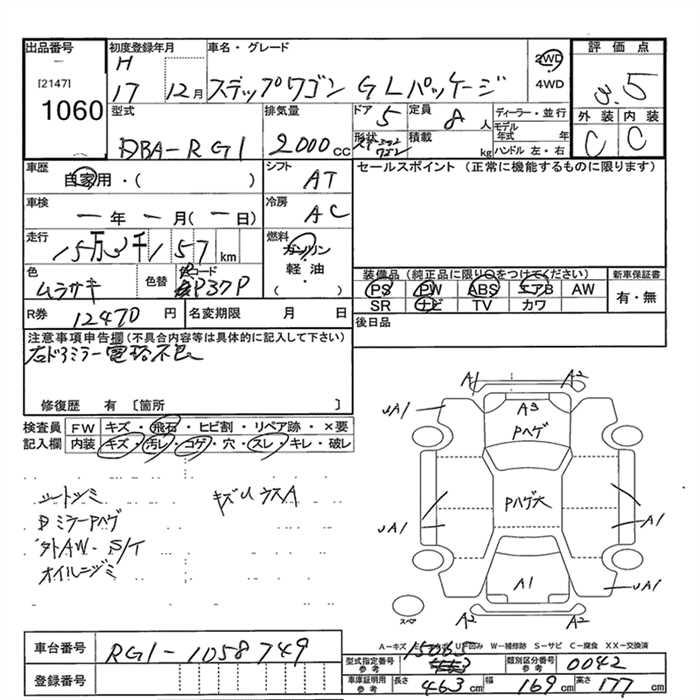 出品番号
[2147]
1060
初度登録年月
H
17 12月
車名・グレード
ステップワゴン GLパッケージ
2WD
4WD
評価点
3.5
外装 内装
C C
型式
DBA-RG1
排気量
2000cc
ドア 5
定員 8人
形状
積載 kg
ディーラー・並行
モデル年式 年
ハンドル 左・右
車歴
自家用・( )
シフト
AT
セールスポイント (正常に機能するものに限ります)
車検
一年 一月(一日)
冷房
AC
走行
15万3千157km
燃料
ガソリン
軽・油
・( )
色
ムラサキ
色替
コード
P37P
装備品(純正品に限り○をつけてください)
PS PW ABS エアB AW
SR ナビ TV カワ
新車保証書
有・無
R券 12470円
名変期限 月 日
後日品
注意事項申告欄(不具合内容等は具体的に記入して下さい)
右ドアミラー電格不良
修復歴 有 〔箇所 〕
検査員記入欄
FW キズ・飛石・ヒビ割・リペア跡・×要
内装 キズ・汚レ・コゲ・穴・スレ・キレ・破レ
シートシミ
キズUラスA
ドミラーPハゲ
外AW・S/T
オイルニジミ
A1 A2
UA1 A3 UA1
Pハゲ
Pハゲ大
UA1 A1
A1 UA1
A2 A2
スペア
A-キズ U-凹み W-補修跡 S-サビ C-腐食 XX-交換済
車台番号 RG1-1058749
登録番号
型式指定番号参考 15065
類別区分番号参考 0042
車庫証明用参考 長さ 463cm 幅 169cm 高さ 177cm